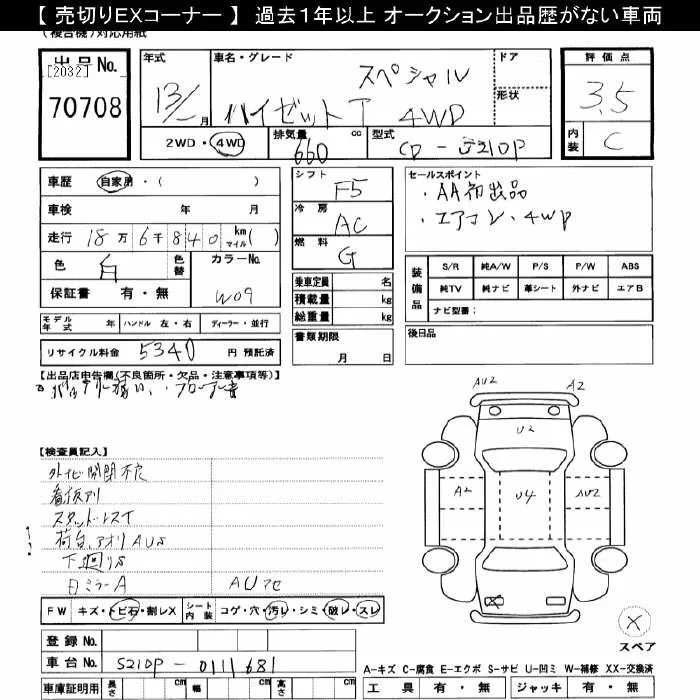 【 売切りEXコーナー 】 過去1年以上 オークション出品歴がない車両
(複合機)対応用紙
出品 No.
[2032]
70708
年式 車名・グレード ドア
スペシャル
13/ 月 ハイゼットT 4WD 形状
2WD・4WD 排気量 660 cc 型式 GD-S210P
評価点
3.5
内装 C
車歴 自家用・( )
車検 年 月
走行 18万6千840 km マイル ( )
色 白 色替 カラーNo. W09
保証書 有・無
モデル年式 年 ハンドル 左・右 ディーラー・並行
リサイクル料金 5340 円 預託済
シフト F5
冷房 AC
燃料 G
乗車定員 名
積載量 kg
総重量 kg
書類期限
月 日
セールスポイント
・AA初出品
・エアコン・4WD
装備品
S/R 純A/W P/S P/W ABS
純TV 純ナビ 革シート 外ナビ エアB
ナビ型番：
後日品
【出品店申告欄(不良箇所・欠品・注意事項等)】
バッテリー弱い、・フロアー音
【検査員記入】
看板アリ
荷台、アオリAUS
下廻りS
ミラーA AUアセ
FW キズ・トビ石・割レX シート内装 コゲ・穴・汚レ・シミ・破レ・スレ
登録 No.
車台 No. S210P-0111681
車庫証明用 長さ cm 幅 cm 高さ cm
AU2 A2
U2
A2 U4 AU2
X
スペア
A-キズ C-腐食 E-エクボ S-サビ U-凹ミ W-補修 XX-交換済
工具 有・無 ジャッキ 有・無